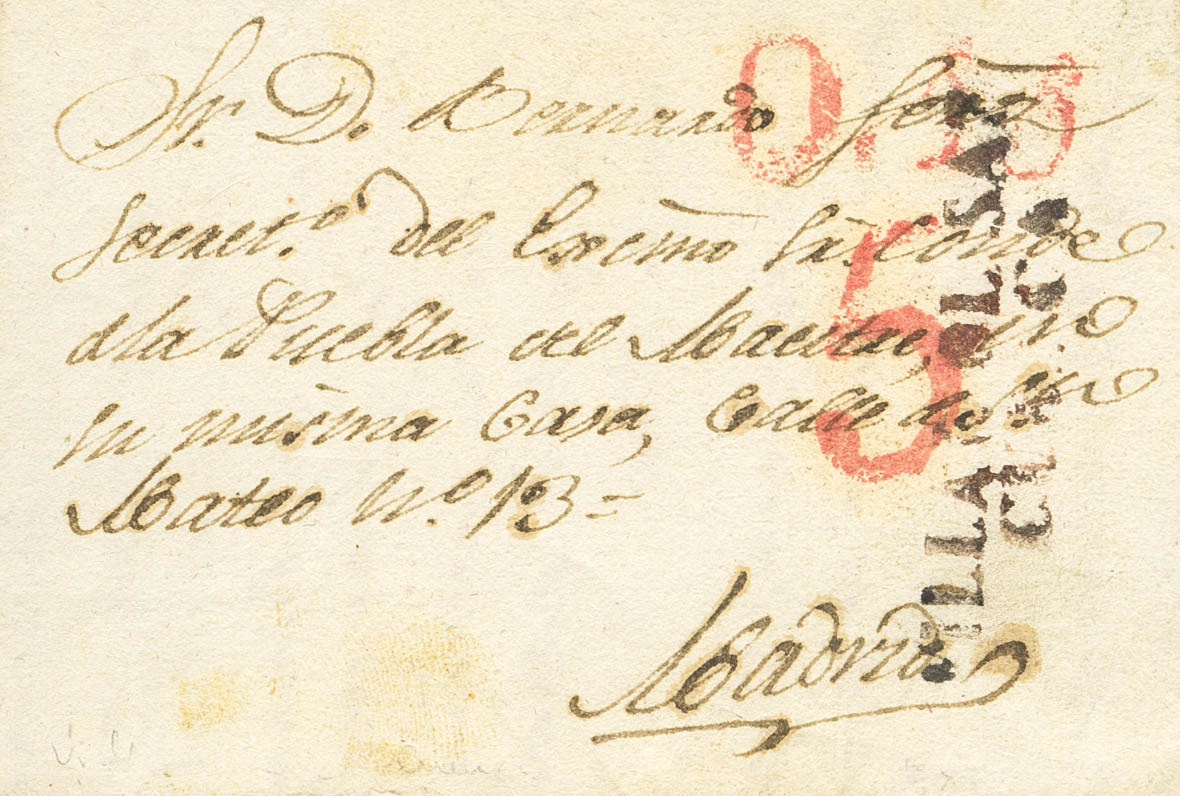 Sr. D. Bernardo
Secret.o del Excmo Sr. Conde
dla Puebla del Maestre, en
su misma Casa, Calle de Sn
Mateo No. 13=
Madrid
5